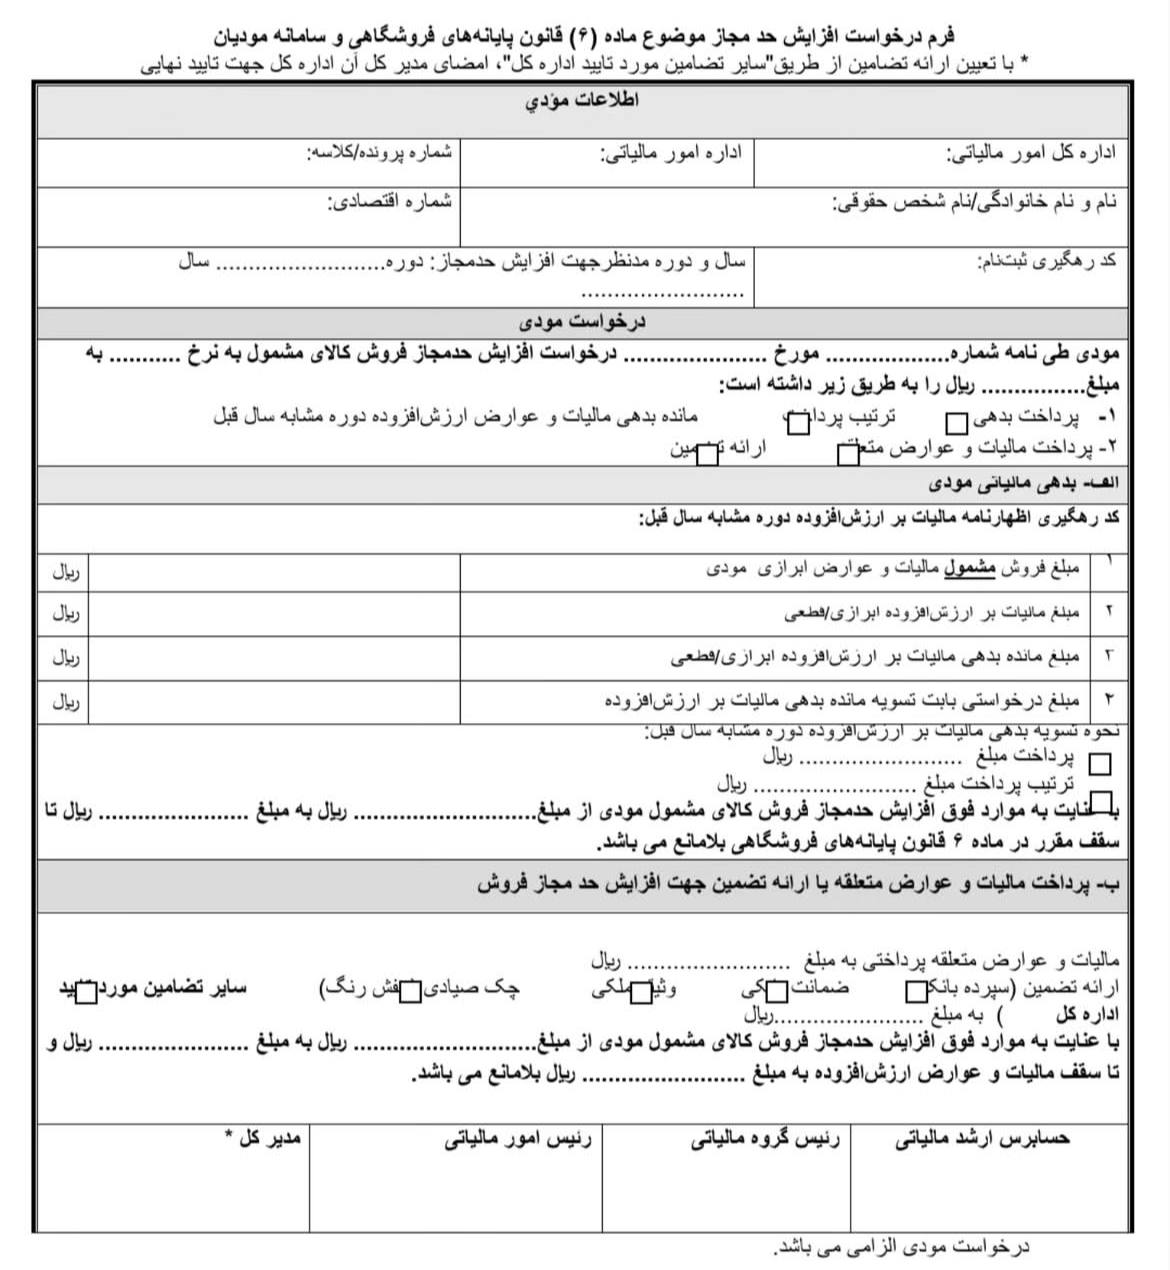 فرم درخواست افزایش حد مجاز موضوع ماده (۶) قانون پایانه‌های فروشگاهی و سامانه مودیان
* با تعیین ارائه تضامین از طریق"سایر تضامین مورد تایید اداره کل"، امضای مدیر کل آن اداره کل جهت تایید نهایی
اطلاعات مؤدي
اداره کل امور مالیاتی:
اداره امور مالیاتی:
شماره پرونده/کلاسه:
نام و نام خانوادگی/نام شخص حقوقی:
شماره اقتصادی:
کد رهگیری ثبت‌نام:
سال و دوره مدنظرجهت افزایش حدمجاز: دوره.......................... سال
.........................
درخواست مودی
مودی طی نامه شماره................... مورخ ...................... درخواست افزایش حدمجاز فروش کالای مشمول به نرخ ........... به
مبلغ................ ریال را به طریق زیر داشته است:
۱- پرداخت بدهی ترتیب پرداخت مانده بدهی مالیات و عوارض ارزش‌افزوده دوره مشابه سال قبل
۲- پرداخت مالیات و عوارض متعلقه ارائه تضمین
الف- بدهی مالیاتی مودی
کد رهگیری اظهارنامه مالیات بر ارزش‌افزوده دوره مشابه سال قبل:
۱ مبلغ فروش مشمول مالیات و عوارض ابرازی مودی ریال
۲ مبلغ مالیات بر ارزش‌افزوده ابرازی/قطعی ریال
۳ مبلغ مانده بدهی مالیات بر ارزش‌افزوده ابرازی/قطعی ریال
۲ مبلغ درخواستی بابت تسویه مانده بدهی مالیات بر ارزش‌افزوده ریال
نحوه تسویه بدهی مالیات بر ارزش‌افزوده دوره مشابه سال قبل:
پرداخت مبلغ ......................... ریال
ترتیب پرداخت مبلغ ......................... ریال
با عنایت به موارد فوق افزایش حدمجاز فروش کالای مشمول مودی از مبلغ............................ ریال به مبلغ ....................... ریال تا
سقف مقرر در ماده ۶ قانون پایانه‌های فروشگاهی بلامانع می باشد.
ب- پرداخت مالیات و عوارض متعلقه یا ارائه تضمین جهت افزایش حد مجاز فروش
مالیات و عوارض متعلقه پرداختی به مبلغ ......................... ریال
ارائه تضمین (سپرده بانکی ضمانت بانکی وثیقه ملکی چک صیادی بنفش رنگ) سایر تضامین مورد تایید
اداره کل ) به مبلغ .......................ریال
با عنایت به موارد فوق افزایش حدمجاز فروش کالای مشمول مودی از مبلغ............................ ریال به مبلغ ....................... ریال و
تا سقف مالیات و عوارض ارزش‌افزوده به مبلغ ......................... ریال بلامانع می باشد.
حسابرس ارشد مالیاتی
رئیس گروه مالیاتی
رئیس امور مالیاتی
مدیر کل *
درخواست مودی الزامی می باشد.